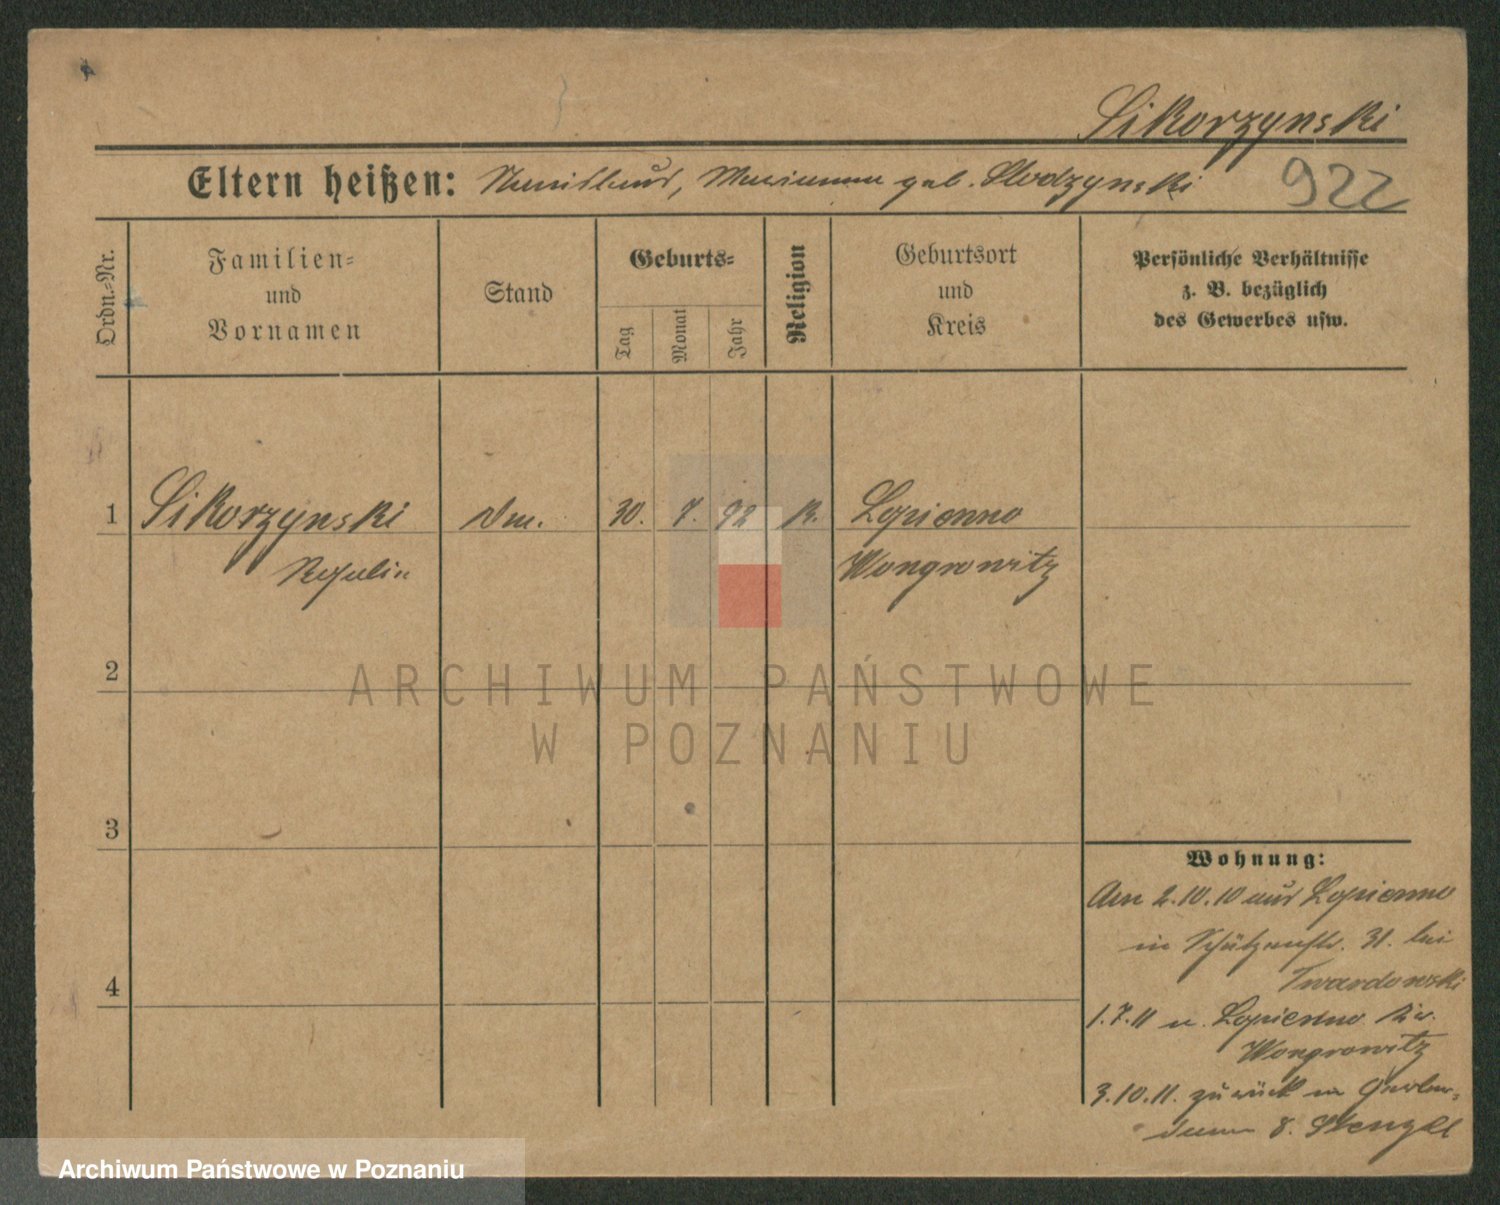 Sikorzynski
Eltern heißen: Stanislaus, Marianna geb. Slodzynski
922
Ordn.-Nr.
Familien-
und
Vornamen
Stand
Geburts-
Tag
Monat
Jahr
Religion
Geburtsort
und
Kreis
Persönliche Verhältnisse
z. B. bezüglich
des Gewerbes usw.
1 Sikorzynski 30. 7. 92 K. Lopienno
Wongrowitz
2
ARCHIWUM PAŃSTWOWE
W POZNANIU
3
Wohnung:
Am 2.10.10 aus Lopienno
in Schützenstr. 31. bei
Twardowski
4
1.7.11 n. Lopienno Kr.
Wongrowitz
3.10.11. zurück n Graben-
8. Stengel
Archiwum Państwowe w Poznaniu